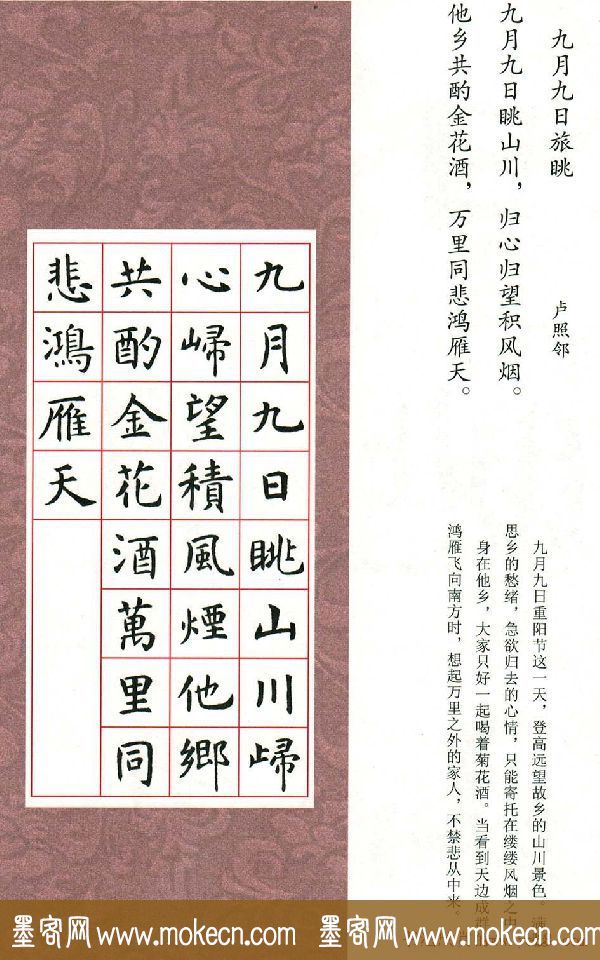 九月九日旅眺
卢照邻
九月九日眺山川，归心归望积风烟。
他乡共酌金花酒，万里同悲鸿雁天。
九月九日重阳节这一天，登高远望故乡的山川景色。满
思乡的愁绪，急欲归去的心情，只能寄托在缕缕风烟之中
身在他乡，大家只好一起喝着菊花酒。当看到天边成群
鸿雁飞向南方时，想起万里之外的家人，不禁悲从中来。
九月九日眺山川歸
心歸望積風煙他鄉
共酌金花酒萬里同
悲鴻雁天
墨客网 www.mokecn.com 墨客网 www.mokecn.com